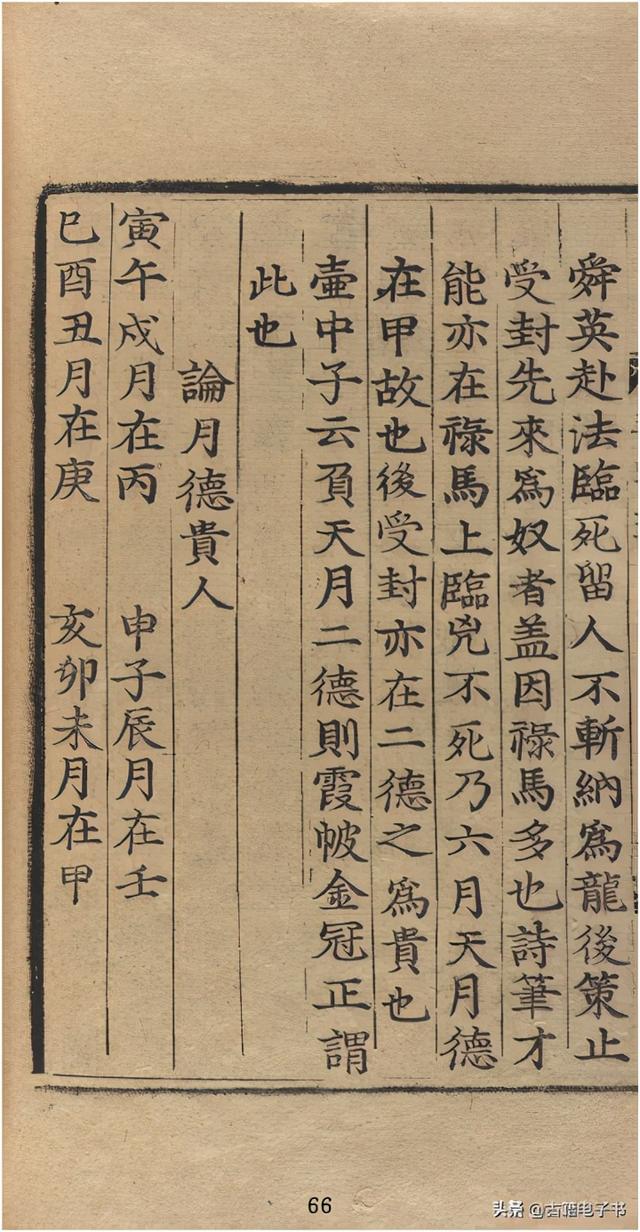 舜英赴法臨死留人不斬納爲龍後策止
受封先來爲奴者盖因祿馬多也詩筆才
能亦在祿馬上臨兇不死乃六月天月德
在甲故也後受封亦在二德之爲貴也
壷中子云負天月二德則霞帔金冠正謂
此也
論月德貴人
寅午戍月在丙 申子辰月在壬
巳酉丑月在庚 亥卯未月在甲
66
头条@古籍电子书